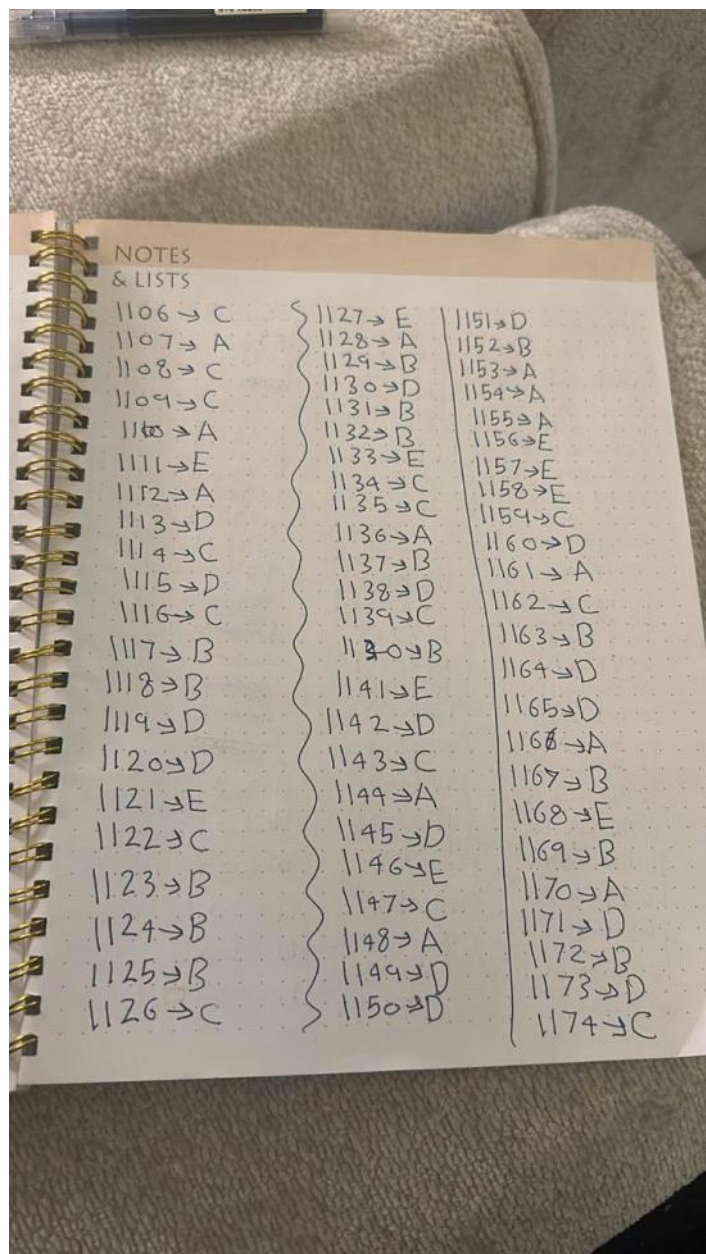 NOTES
& LISTS
1106→C
1107→A
1108→C
1109→C
1110→A
1111→E
1112→A
1113→D
1114→C
1115→D
1116→C
1117→B
1118→B
1119→D
1120→D
1121→E
1122→C
1123→B
1124→B
1125→B
1126→C
1127→E
1128→A
1129→B
1130→D
1131→B
1132→B
1133→E
1134→C
1135→C
1136→A
1137→B
1138→D
1139→C
1130→B
1141→E
1142→D
1143→C
1144→A
1145→D
1146→E
1147→C
1148→A
1149→D
1150→D
1151→D
1152→B
1153→A
1154→A
1155→A
1156→E
1157→E
1158→E
1159→C
1160→D
1161→A
1162→C
1163→B
1164→D
1165→D
1166→A
1167→B
1168→E
1169→B
1170→A
1171→D
1172→B
1173→D
1174→C